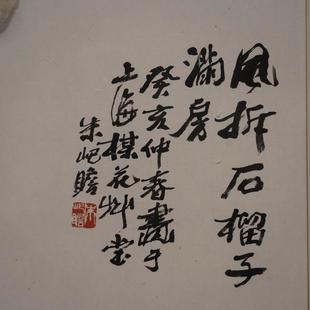 风拆石榴子
满房
癸亥仲春画于
上海楳花艸堂
朱屺瞻